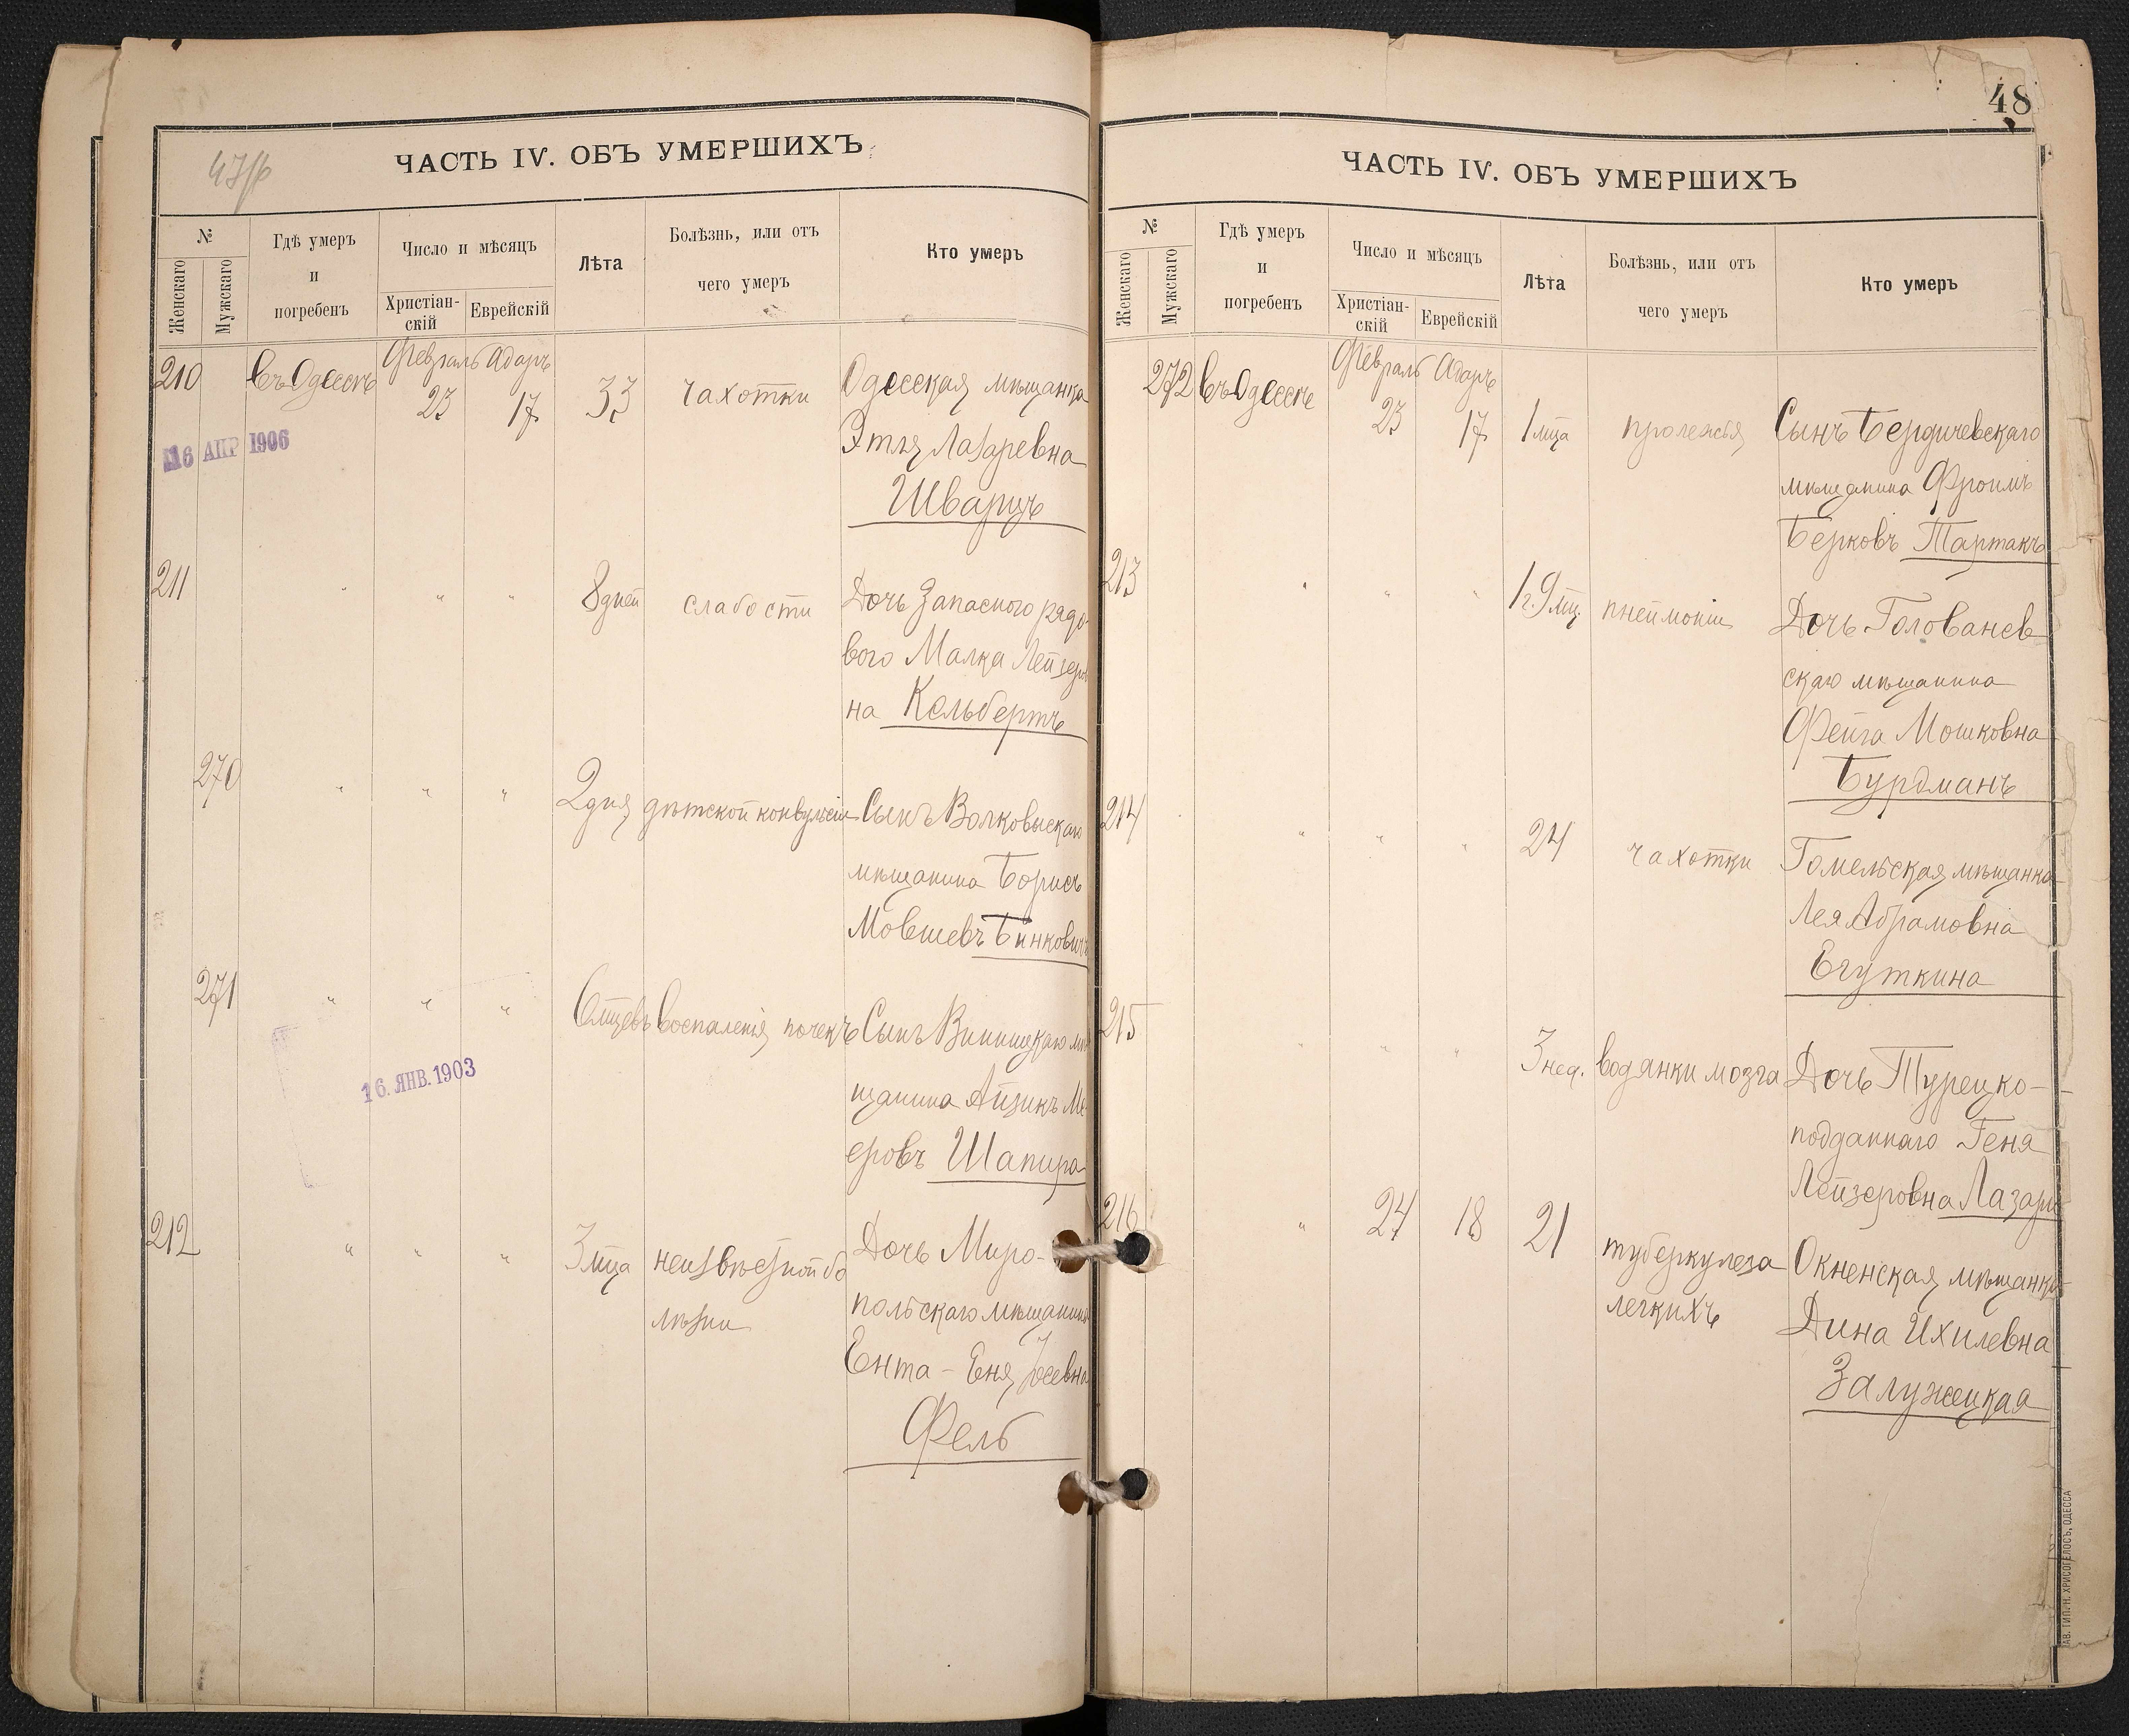 47/б
ЧАСТЬ IV. ОБЪ УМЕРШИХЪ
№
Женскаго
Мужскаго
Гдѣ умеръ
и
погребенъ
Число и мѣсяцъ
Христіан-
скій
Еврейскій
Лѣта
Болѣзнь, или отъ
чего умеръ
Кто умеръ
210 въ Одессѣ Февраль Адаръ
23 17 33 чахотки Одесская мѣщанка
Этля Лазаревна
Шварцъ
16 АПР 1906
211 " " " 8 дней слабости Дочь запаснаго рядо-
вого Малка Лейзеров
на Кельбертъ
270 " " " 2 дня дѣтской конвульсіи Сынъ Волковыскаго
мѣщанина Борисъ
Мовшевъ Бинковичъ
271 " " " 6 мцевъ воспаленія почекъ Сынъ Винницкаго мѣ
щанина Айзикъ Ме-
еровъ Шапира
16. ЯНВ. 1903
212 " " " 3 мца неизвѣстной бо
лѣзни
Дочь Миро-
польскаго мѣщанина
Ента - Еня Іосевна
Фель
48
ЧАСТЬ IV. ОБЪ УМЕРШИХЪ
№
Женскаго
Мужскаго
Гдѣ умеръ
и
погребенъ
Число и мѣсяцъ
Христіан-
скій
Еврейскій
Лѣта
Болѣзнь, или отъ
чего умеръ
Кто умеръ
272 въ Одессѣ Февраль Адаръ
23 17 1 мца пролежня Сынъ Бердичевскаго
мѣщанина Фроимъ
Берковъ Тартакъ
213 " " " 1 г. 9 мц. пнеймоніи Дочь Голованев-
скаго мѣщанина
Фейга Мошковна
Бурдманъ
214 " " " 24 чахотки Гомельская мѣщанка
Лея Абрамовна
Егуткина
215 " " " 3 нед. водянки мозга Дочь Турецко-
подданнаго Геня
Лейзеровна Лазари
216 " 24 18 21 туберкулеза
легкихъ
Окненская мѣщанка
Дина Ихилевна
Залужецкая
ТИП. Н. ХРИСОГЕЛОСЪ, ОДЕССА